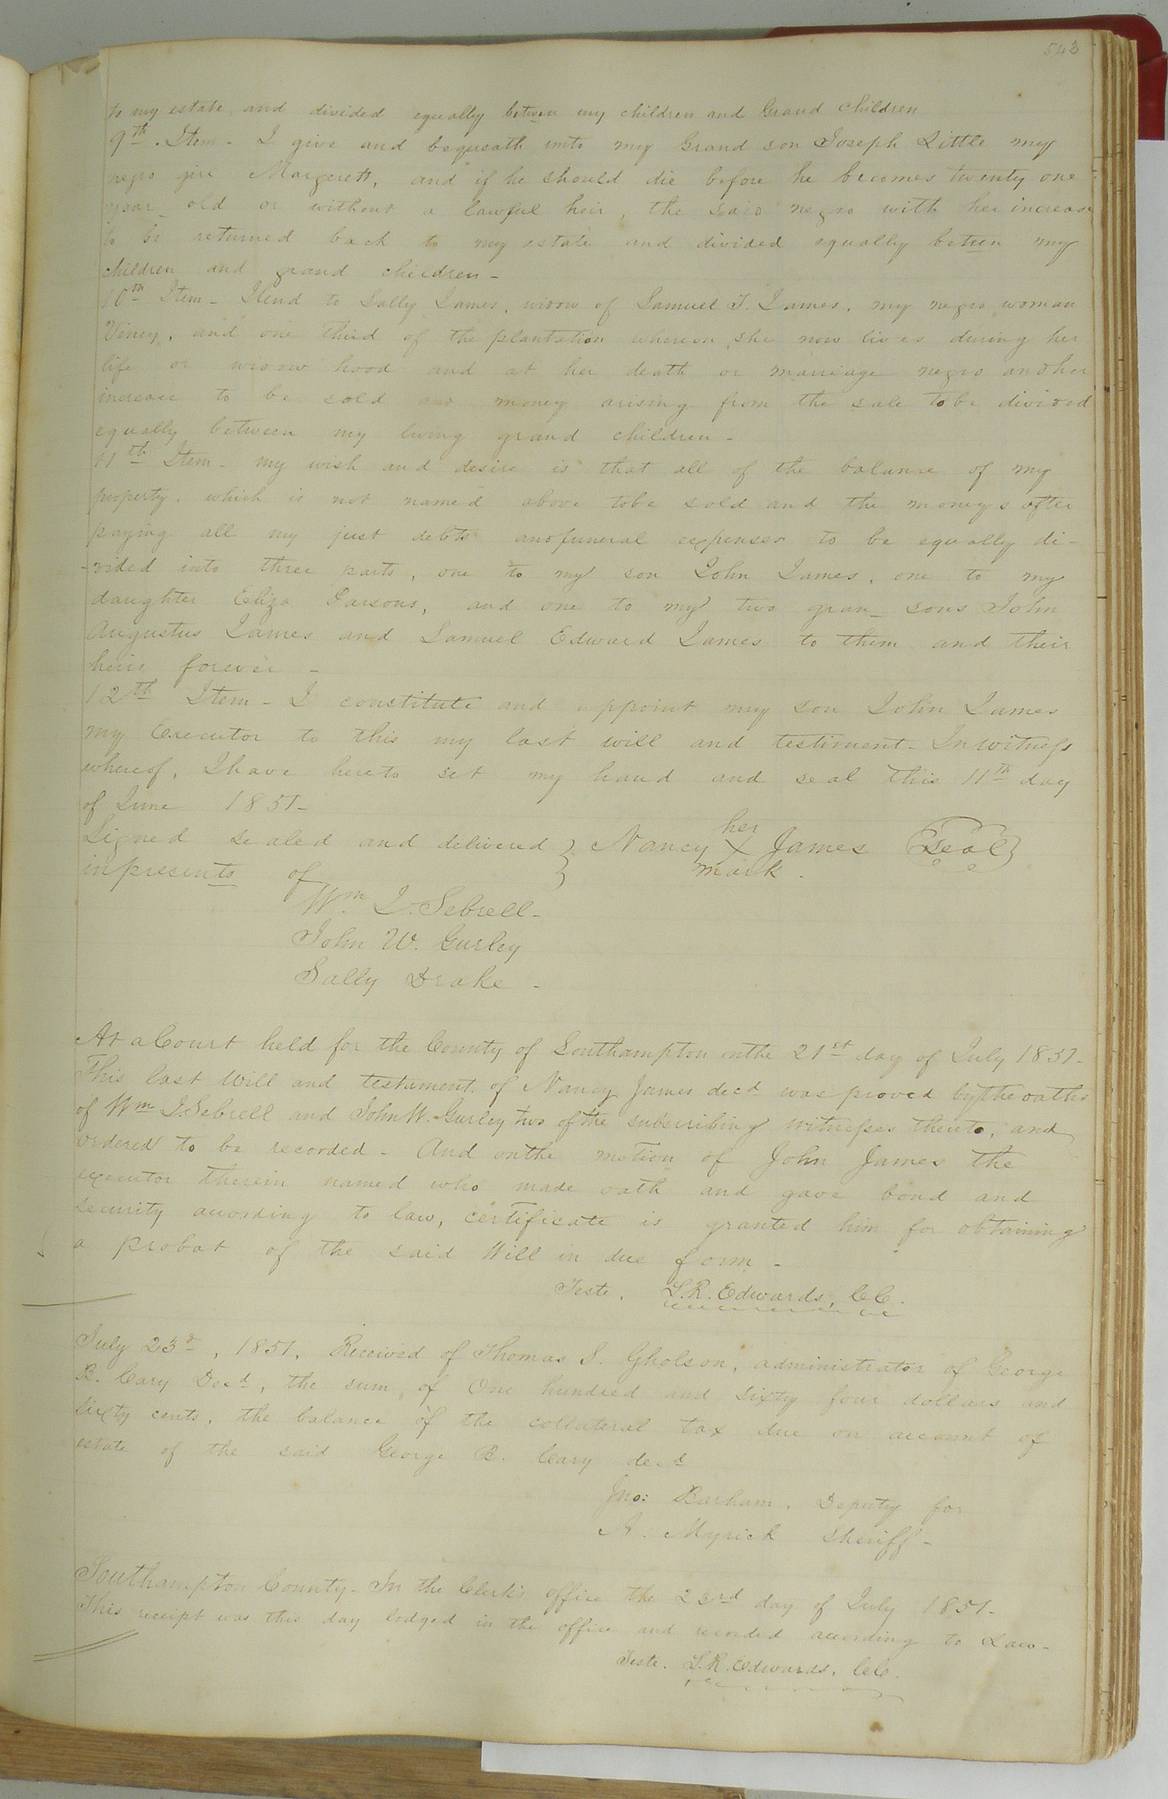 543
to my estate and divided equally between my children and Grand Children
9th. Item - I give and bequeath unto my Grand son Joseph Little my
negro girl Margerett, and if he should die before he becomes twenty one
year old or without a lawful heir, the said negro with her increase
to be returned back to my estate and divided equally between my
children and grand children -
10th Item - I lend to Sally James, widow of Samuel T. James, my negro woman
Viney, and one third of the plantation whereon she now lives during her
life or widow hood and at her death or marriage negro and her
increase to be sold and money arising from the sale to be divided
equally between my living grand children -
11th Item - my wish and desire is that all of the balance of my
property, which is not named above to be sold and the moneys after
paying all my just debts and funeral expenses to be equally di-
-vided into three parts, one to my son John James, one to my
daughter Eliza Parsons, and one to my two gran sons John
Augustus James and Samuel Edward James to them and their
heirs forever -
12th Item - I constitute and appoint my son John James
my Executor to this my last will and testiment - In witness
whereof, I have hereto set my hand and seal this 11th day
of June 1851 -
Signed sealed and delivered } Nancy her X mark James {Seal}
in presents of
Wm J. Sebrell -
John W. Gurley
Sally Drake -
At a Court held for the County of Southampton on the 21st day of July 1851 -
This last Will and testament of Nancy James decd was proved by the oaths
of Wm J. Sebrell and John W. Gurley two of the subscribing witnesses thereto, and
ordered to be recorded - And on the motion of John James the
executor therein named who made oath and gave bond and
security according to law, certificate is granted him for obtaining
a probat of the said Will in due form -
Teste. L. R. Edwards, C.C.
July 23d, 1851, Received of Thomas S. Gholson, administrator of George
B. Cary Decd, the sum of One hundred and sixty four dollars and
sixty cents, the balance of the collateral tax due on account of
estate of the said George B. Cary decd
Jno: Barham, Deputy for
A. Myrick Sheriff -
Southampton County - In the Clerk's office the 23rd day of July 1851 -
This receipt was this day lodged in the office and recorded according to Law -
Teste. L. R. Edwards, C.C.